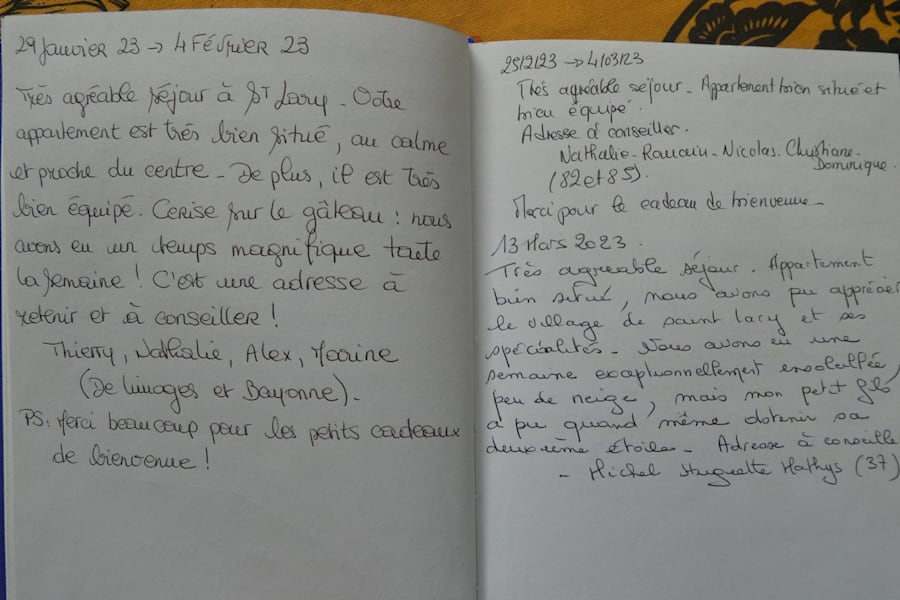 29 Janvier 23 → 4 Février 23
Très agréable séjour à St Lary - Votre
appartement est très bien situé, au calme
et proche du centre - De plus, il est très
bien équipé. Cerise sur le gâteau : nous
avons eu un temps magnifique toute
la semaine ! C'est une adresse à
retenir et à conseiller !
Thierry, Nathalie, Alex, Marine
(De Limoges et Bayonne).
PS : Merci beaucoup pour les petits cadeaux
de bienvenue !
25/2/23 → 4/03/23
Très agréable séjour - Appartement bien situé et
bien équipé.
Adresse à conseiller.
Nathalie - Romain - Nicolas. Christiane -
Dominique.
(82 et 85).
Merci pour le cadeau de bienvenue -
13 Mars 2023.
Très agréable séjour. Appartement
bien situé, nous avons pu apprécier
le village de saint lary et ses
spécialités - Nous avons eu une
semaine exceptionnellement ensoleillée,
peu de neige, mais mon petit fils
a pu quand même obtenir sa
deuxième étoile - Adresse à conseille
- Michel Huguette Mathys (37)